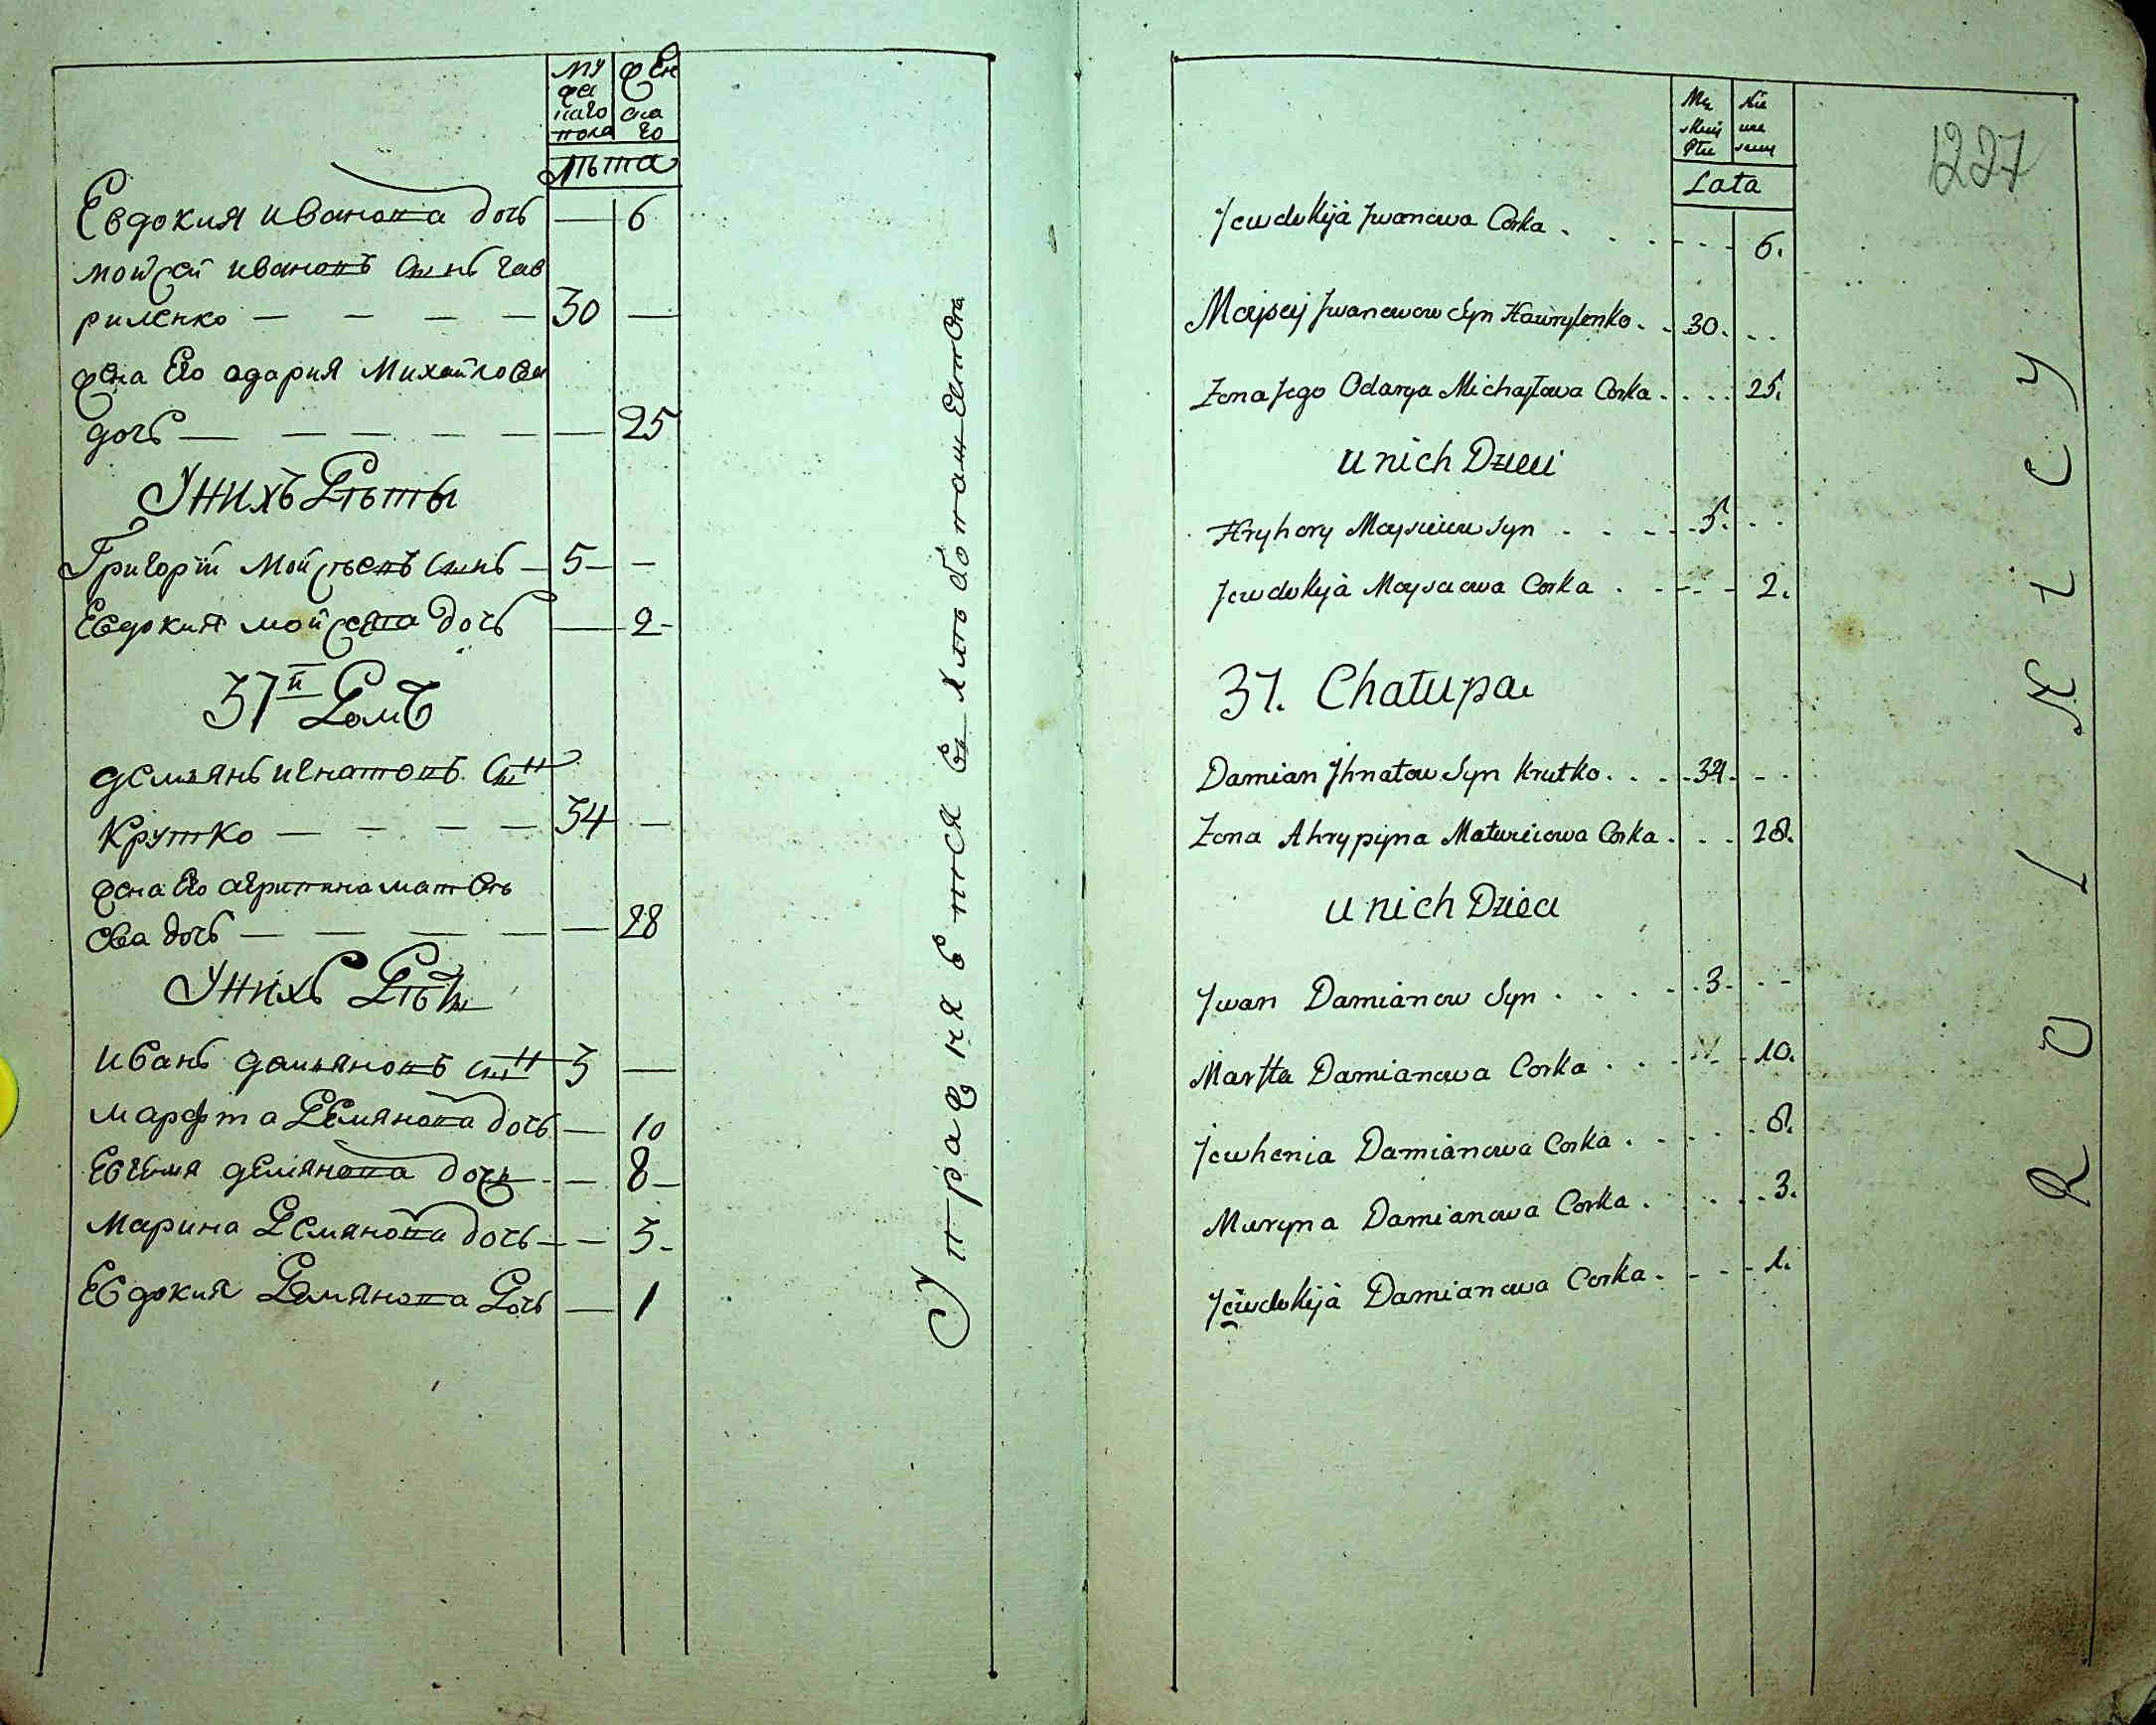 му фен
жес
каго ска
пола го
лѣта
Евдокия Иванова дочь — 6
Мойсей Ивановъ сынъ Гав
риленко — — — — 30 —
жена Его Одария Михайлова
дочь — — — — — — 25
У нихъ Дѣты
Григорій Мойсѣевъ сынъ — 5 — —
Евдокия Мойсеева дочь — 2 —
37й Домъ
Демьянъ Игнатовъ сынъ
Крутко — — — — 34 —
жена Его Агрипина Матвѣ
ева дочь — — — — — 28
У нихъ Дѣты
Иванъ Демьяновъ сынъ 3 —
Марфта Демянова дочь — 10
Евгения Демянова дочь — — 8 —
Марина Демянова дочь — — 3 -
Евдокия Демянова Дочь — 1
Упражняется въ хлѣбопашествѣ
1227
Mę Nie
skiej wie
Płci
Lata
Jewdokija Jwanowa Corka . . . - - - 6.
Mojsej Jwanowow Syn Hawrylenko . . 30. . .
Zona Jego Odarya Michajłowa Corka . . . . 25.
U nich Dzieci
Hryhory Moysieiew Syn . . - - - 5. . .
Jewdokija Moysiaowa Corka . - - - - 2.
37. Chałupa
Damian Jhnatow Syn Krutko . . . 34. - .
Zona Ahrypijna Matwieiowa Corka . . . 28.
U nich Dzieci
Jwan Damianow Syn . . . . . 3. . -
Marfta Damianowa Corka . . . - - 10.
Jewhenia Damianowa Corka . . . . . 8.
Maryna Damianowa Corka . . . . . 3.
Jewdokija Damianowa Corka . - - - 1.
ROLNICY